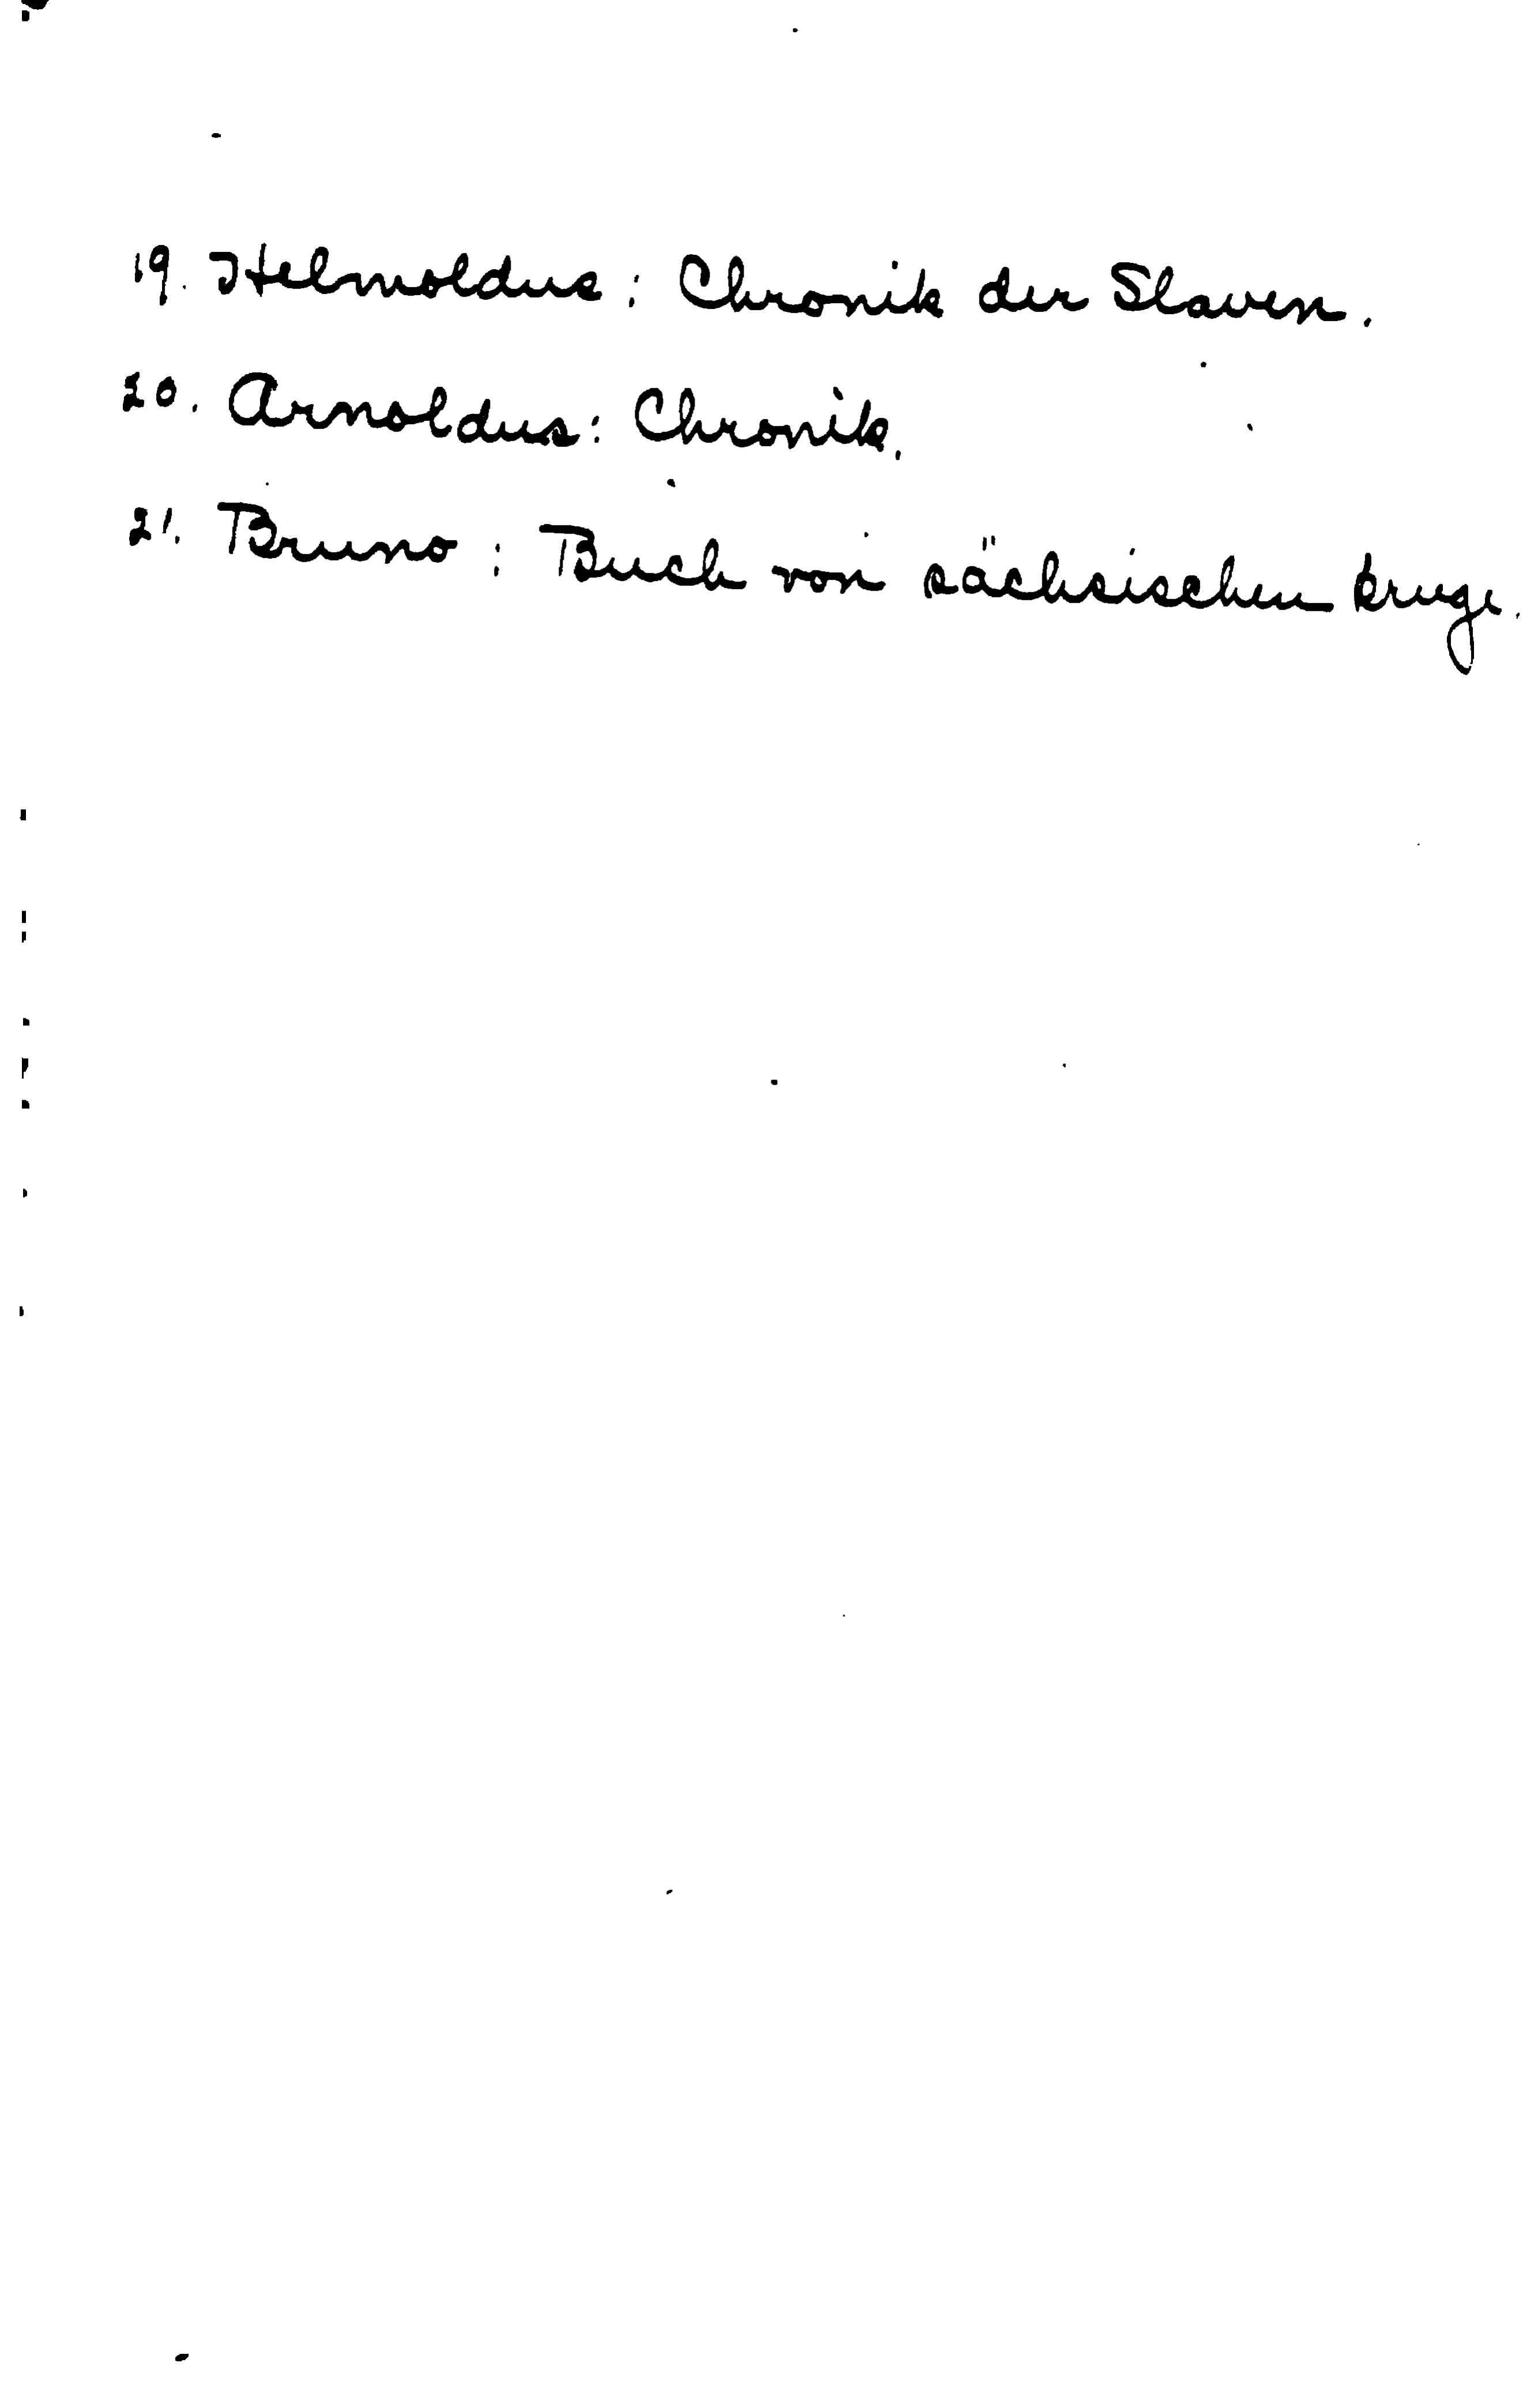 19. Helmoldus: Chronik der Slaven.
20. Arnoldus: Chronik.
21. Bruno: Buch von sächsischen kriege.